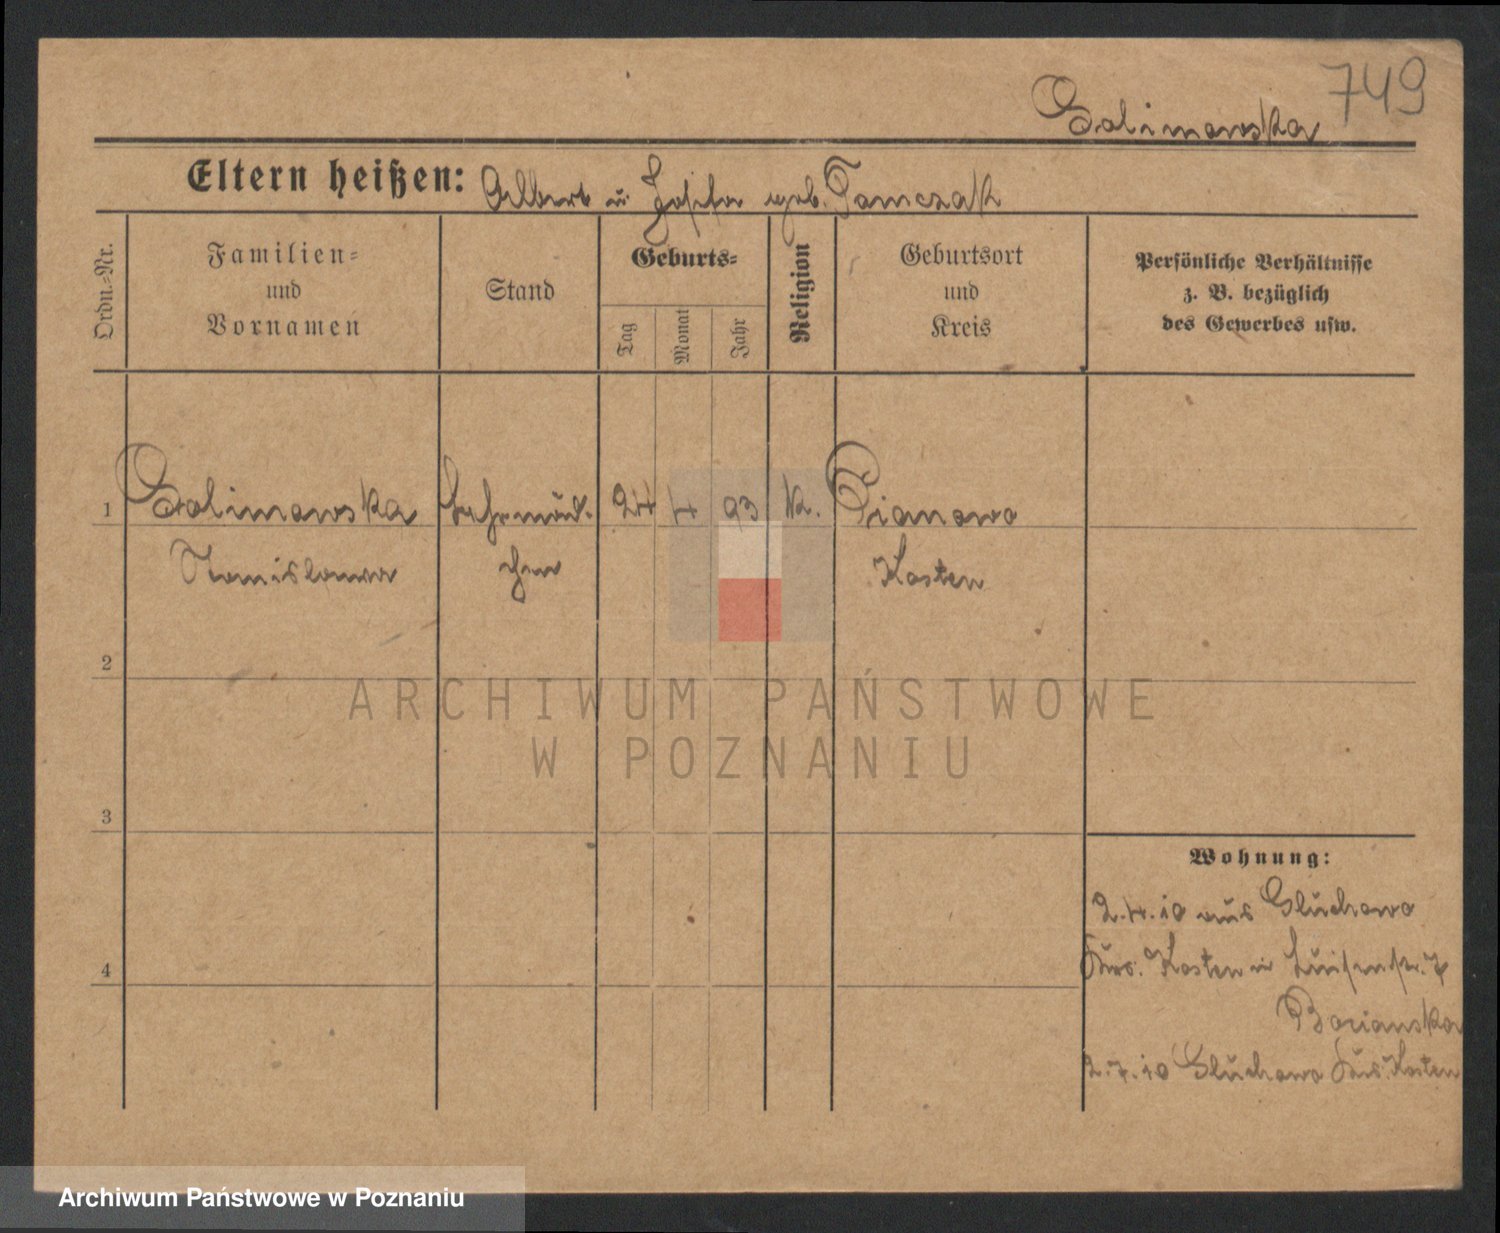 749
Salinowska
Eltern heißen: Albert u Josefa geb. Tomczak
Ordn.-Nr.
Familien=
und
Vornamen
Stand
Geburts=
Tag
Monat
Jahr
Religion
Geburtsort
und
Kreis
Persönliche Verhältnisse
z. B. bezüglich
des Gewerbes usw.
1 Salinowska Lehrmäd- 24 4 93 k. Pianowo
Stanislawa chen Kosten
2
3
4
Wohnung:
2.4.10 aus Gluchowo
Krs. Kosten in Luisenstr. 7
Bocianska
2.7.10 Gluchowo Krs. Kosten
ARCHIWUM PAŃSTWOWE
W POZNANIU
Archiwum Państwowe w Poznaniu